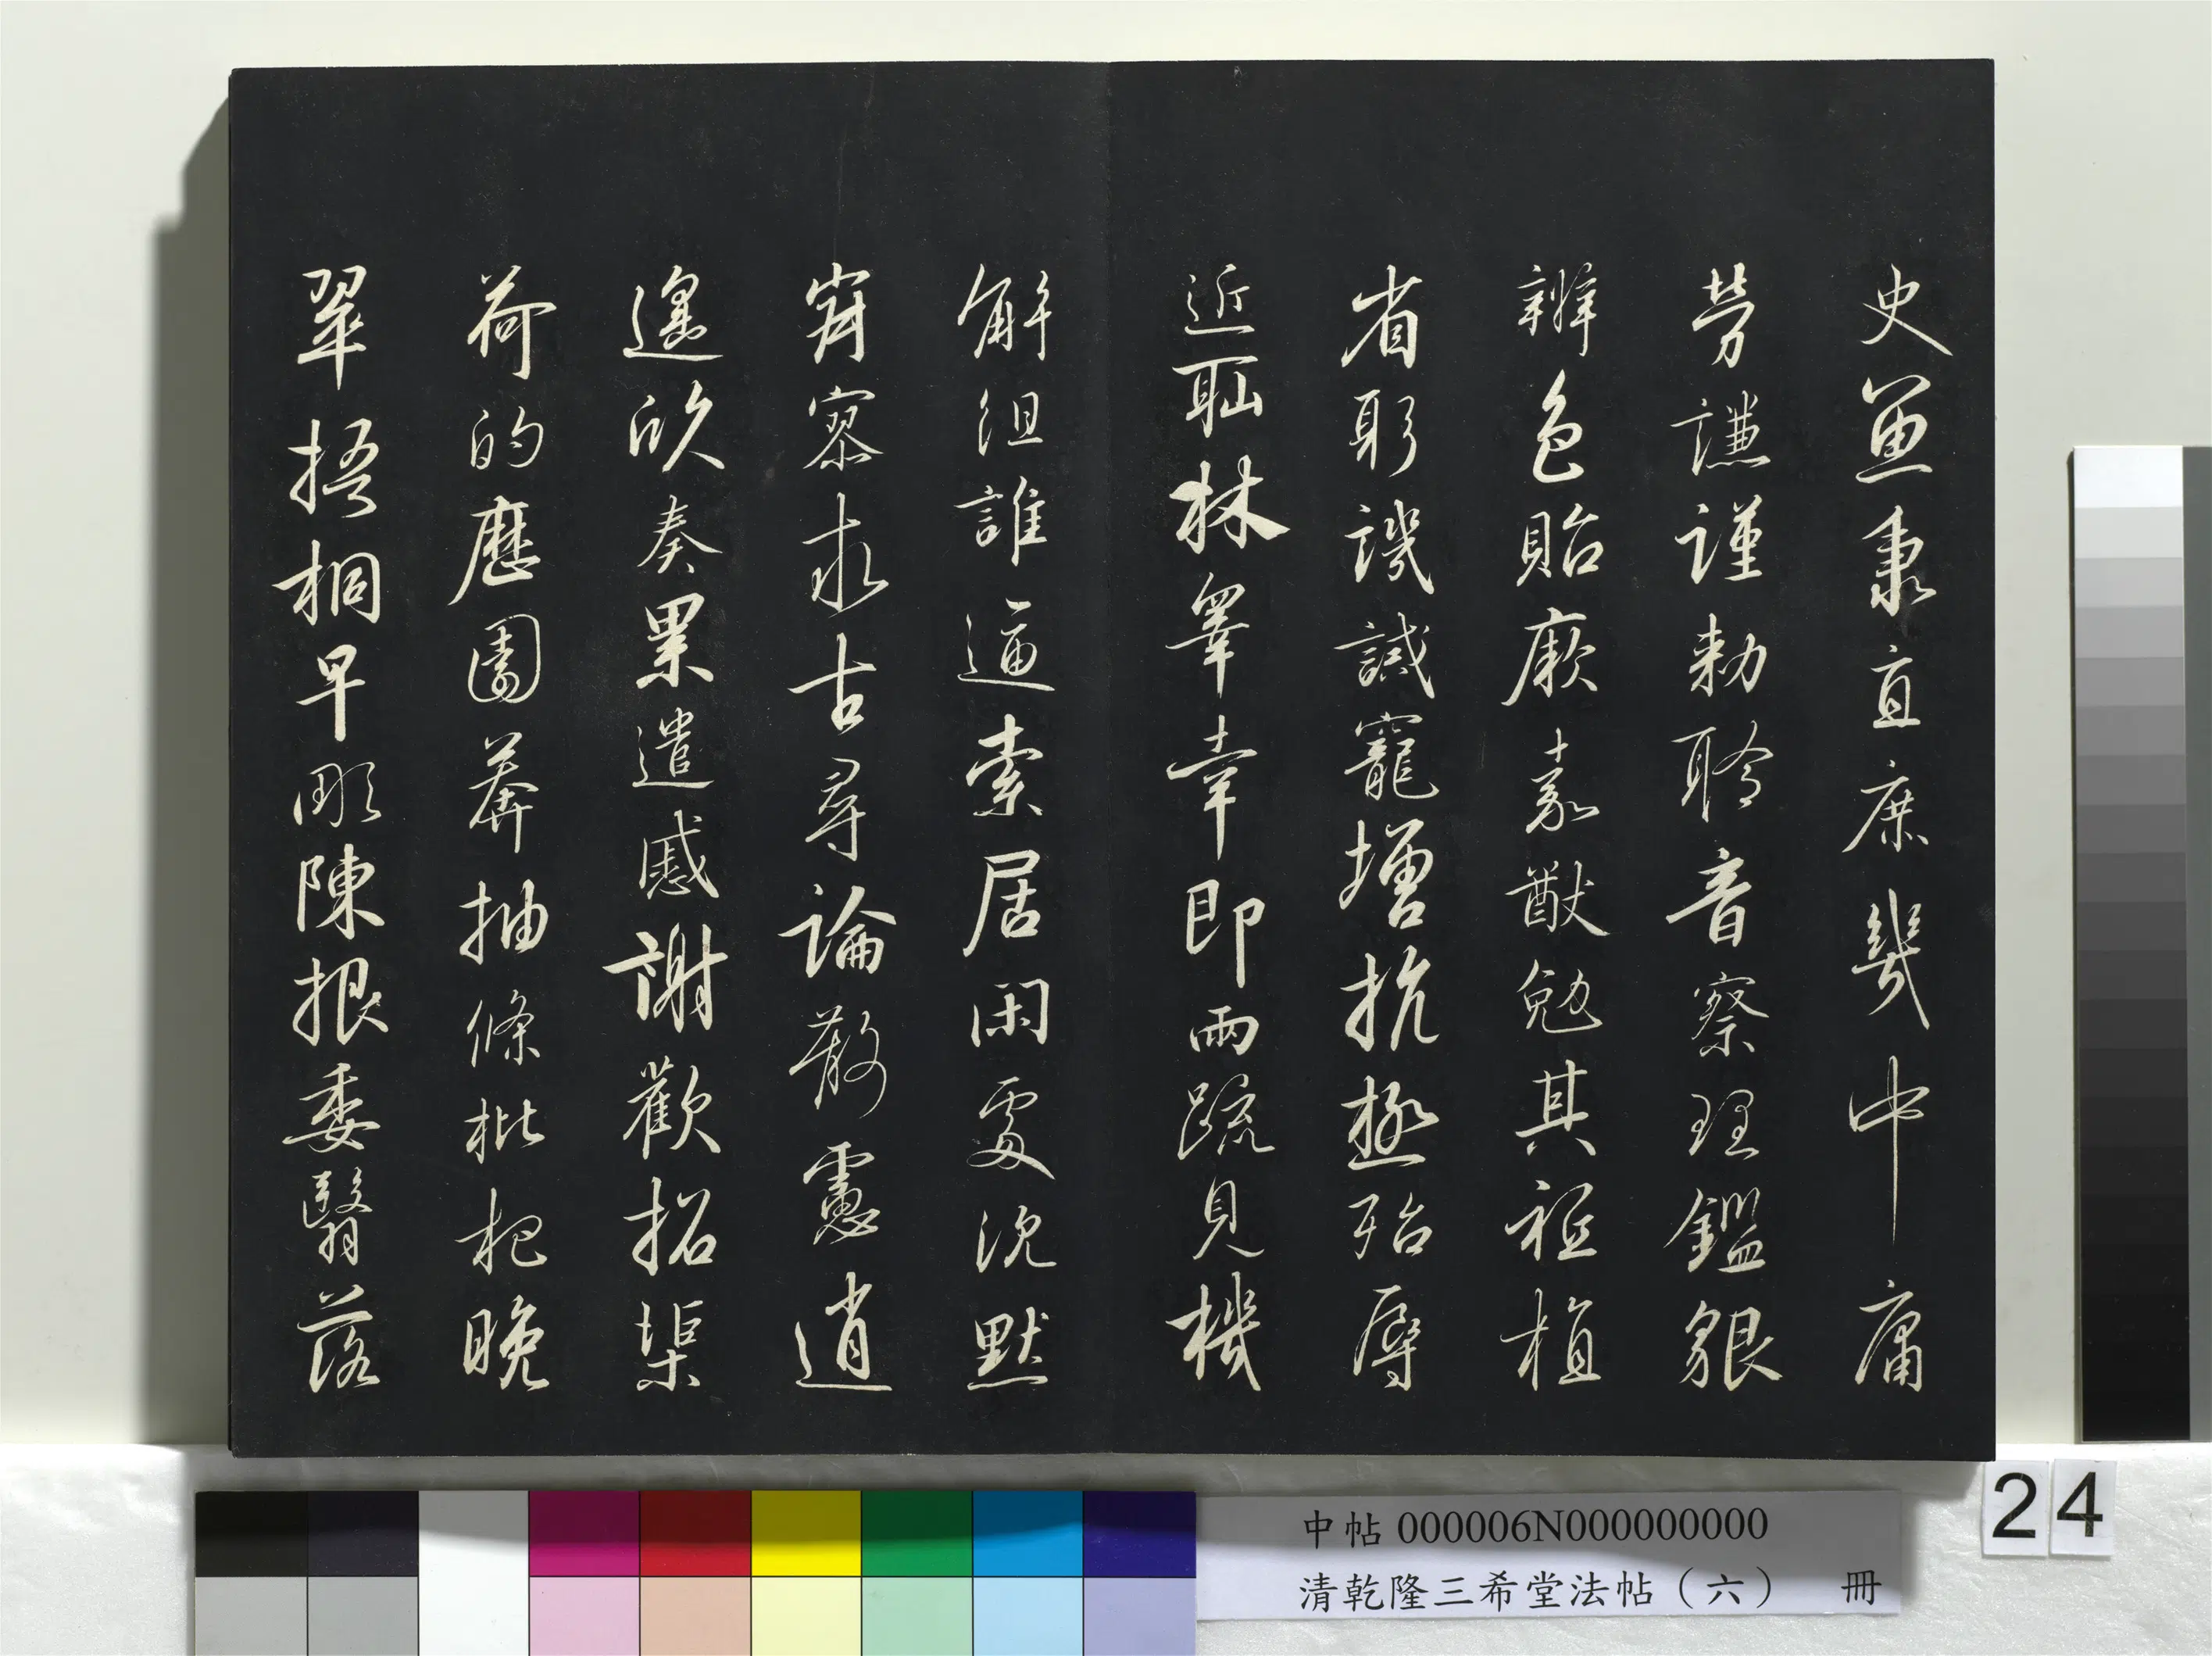 史魚秉直庶幾中庸
勞謙謹勅聆音察理鑑貌
辨色貽厥嘉猷勉其祗植
省躬譏誡寵增抗極殆辱
近恥林皋幸即兩疏見機
解組誰逼索居閑處沉默
寂寥求古尋論散慮逍
遙欣奏累遣慼謝歡招渠
荷的歷園莽抽條枇杷晚
翠梧桐早彫陳根委翳落
中帖 000006N000000000
清乾隆三希堂法帖（六） 冊
24